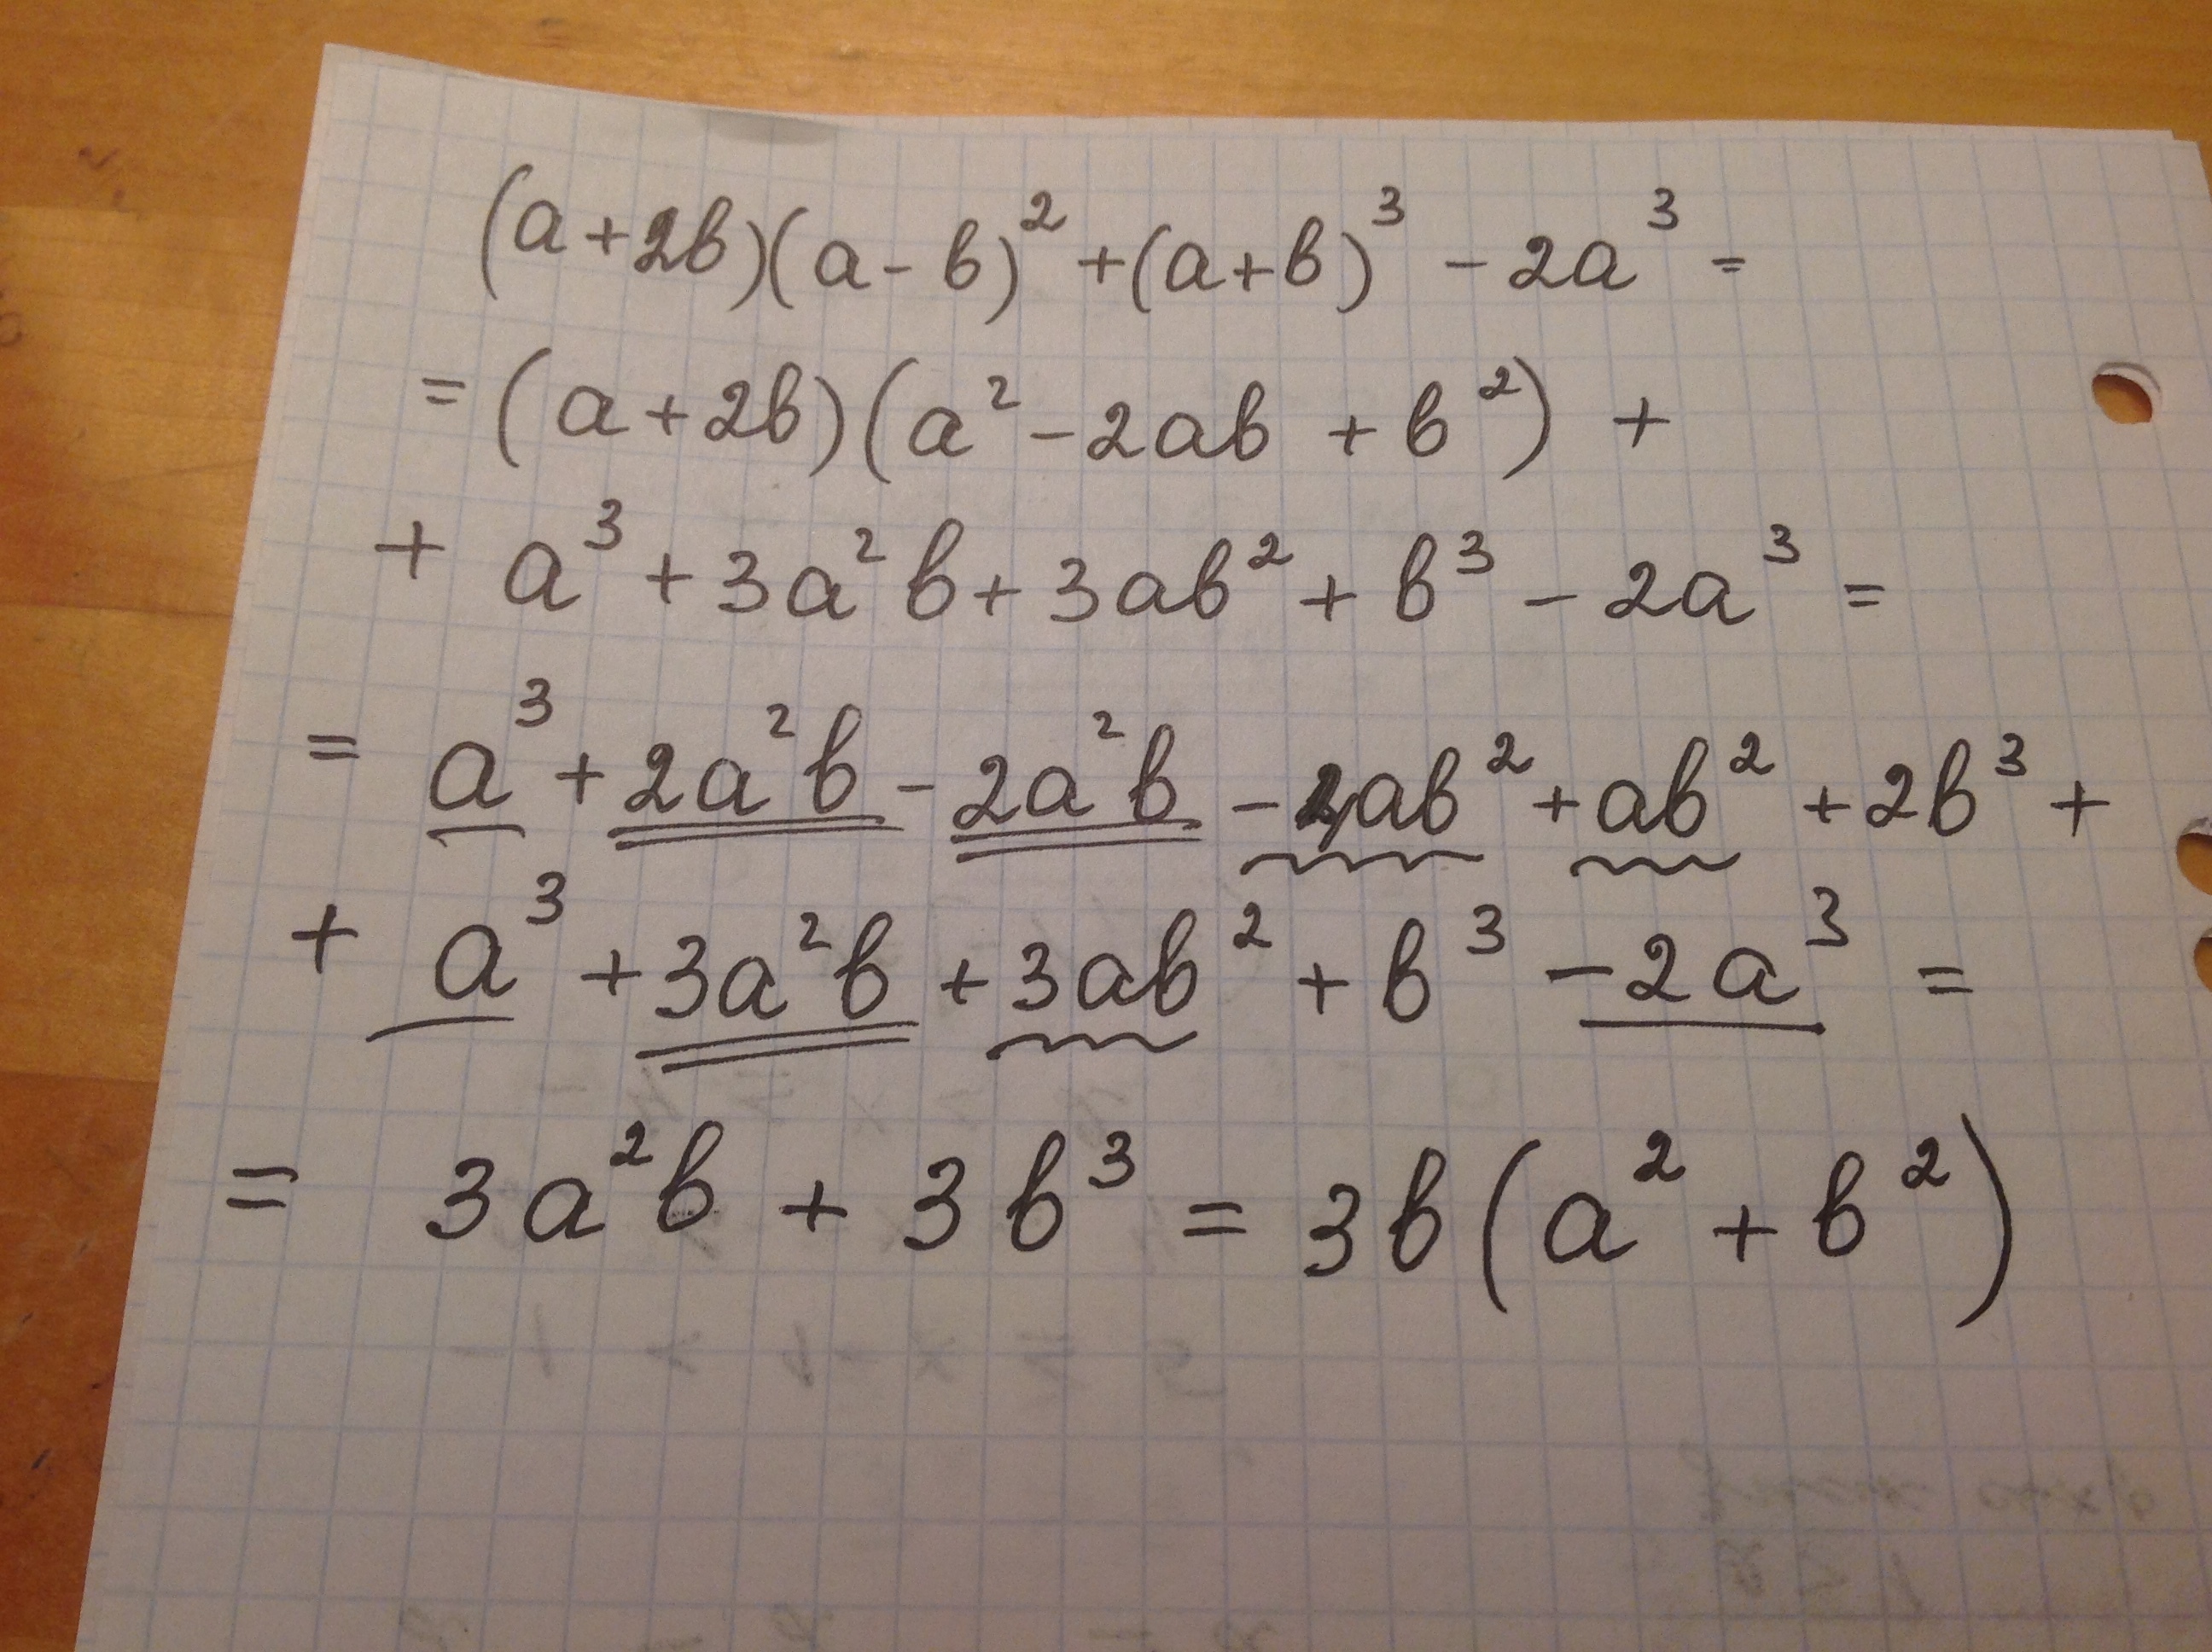 (a+2b)(a-b)² +(a+b)³ - 2a³ =
= (a+2b)(a² - 2ab + b²) +
+ a³ + 3a²b + 3ab² + b³ - 2a³ =
= a³ + 2a²b - 2a²b - 4ab² + ab² + 2b³ +
+ a³ + 3a²b + 3ab² + b³ - 2a³ =
= 3a²b + 3b³ = 3b(a² + b²)